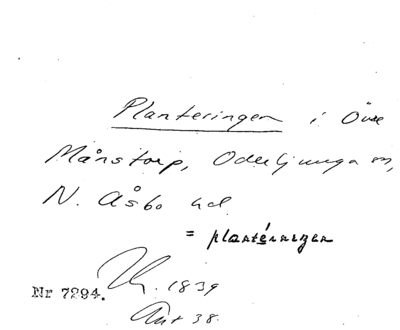 Planteringen i Övre
Månstorp, Oderljunga sn,
N. Åsbo hd
= plantéringen
1839
Nr 7294.
Ant 38.